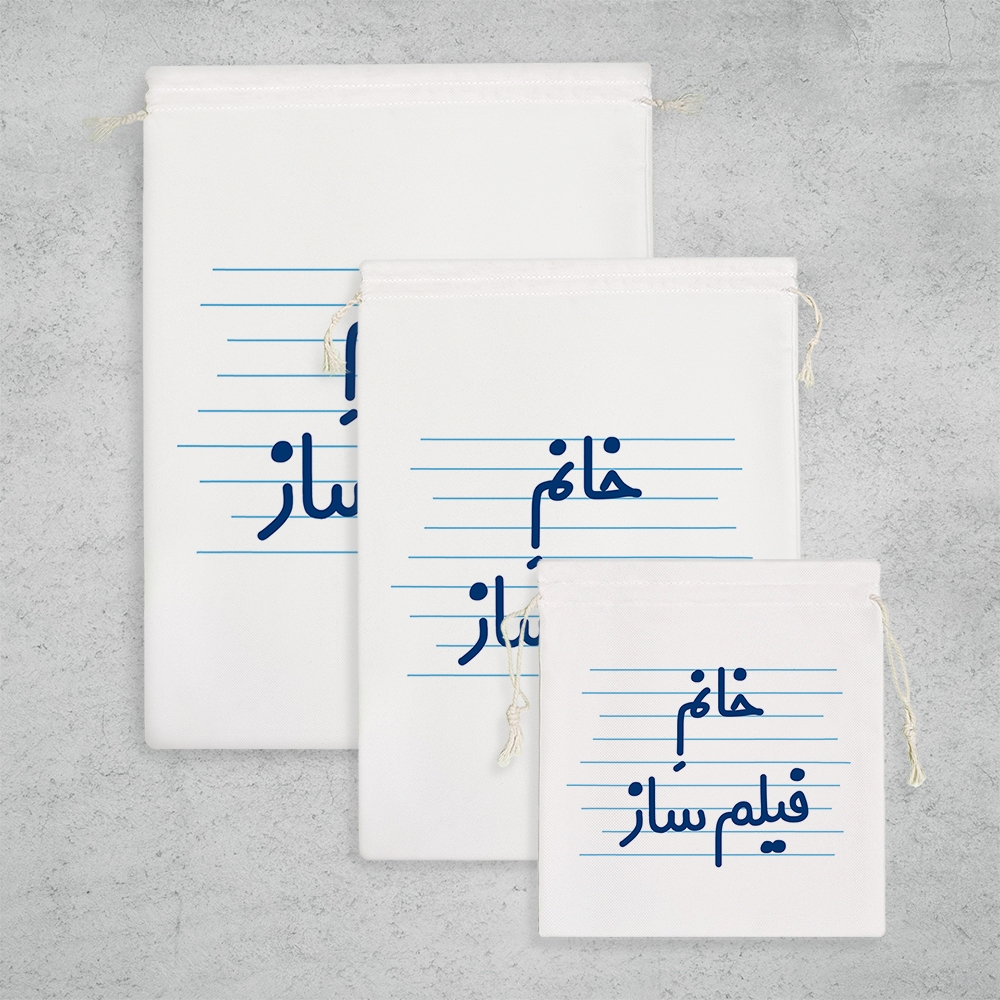 ساز
خانمِ
ساز
خانمِ
فیلم ساز